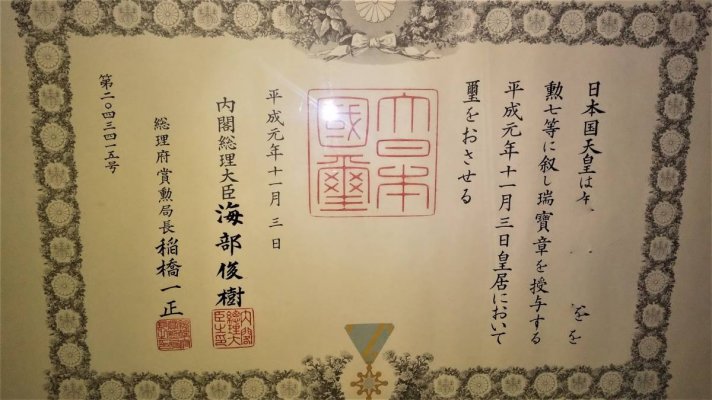 日本国天皇は
を
勲七等に叙し瑞寶章を授与する
平成元年十一月三日皇居において
璽をおさせる
大日本
國璽
平成元年十一月三日
内閣総理大臣 海部俊樹
内閣
総理大
臣之印
総理府賞勲局長 稲橋一正
第二〇四三四一五号